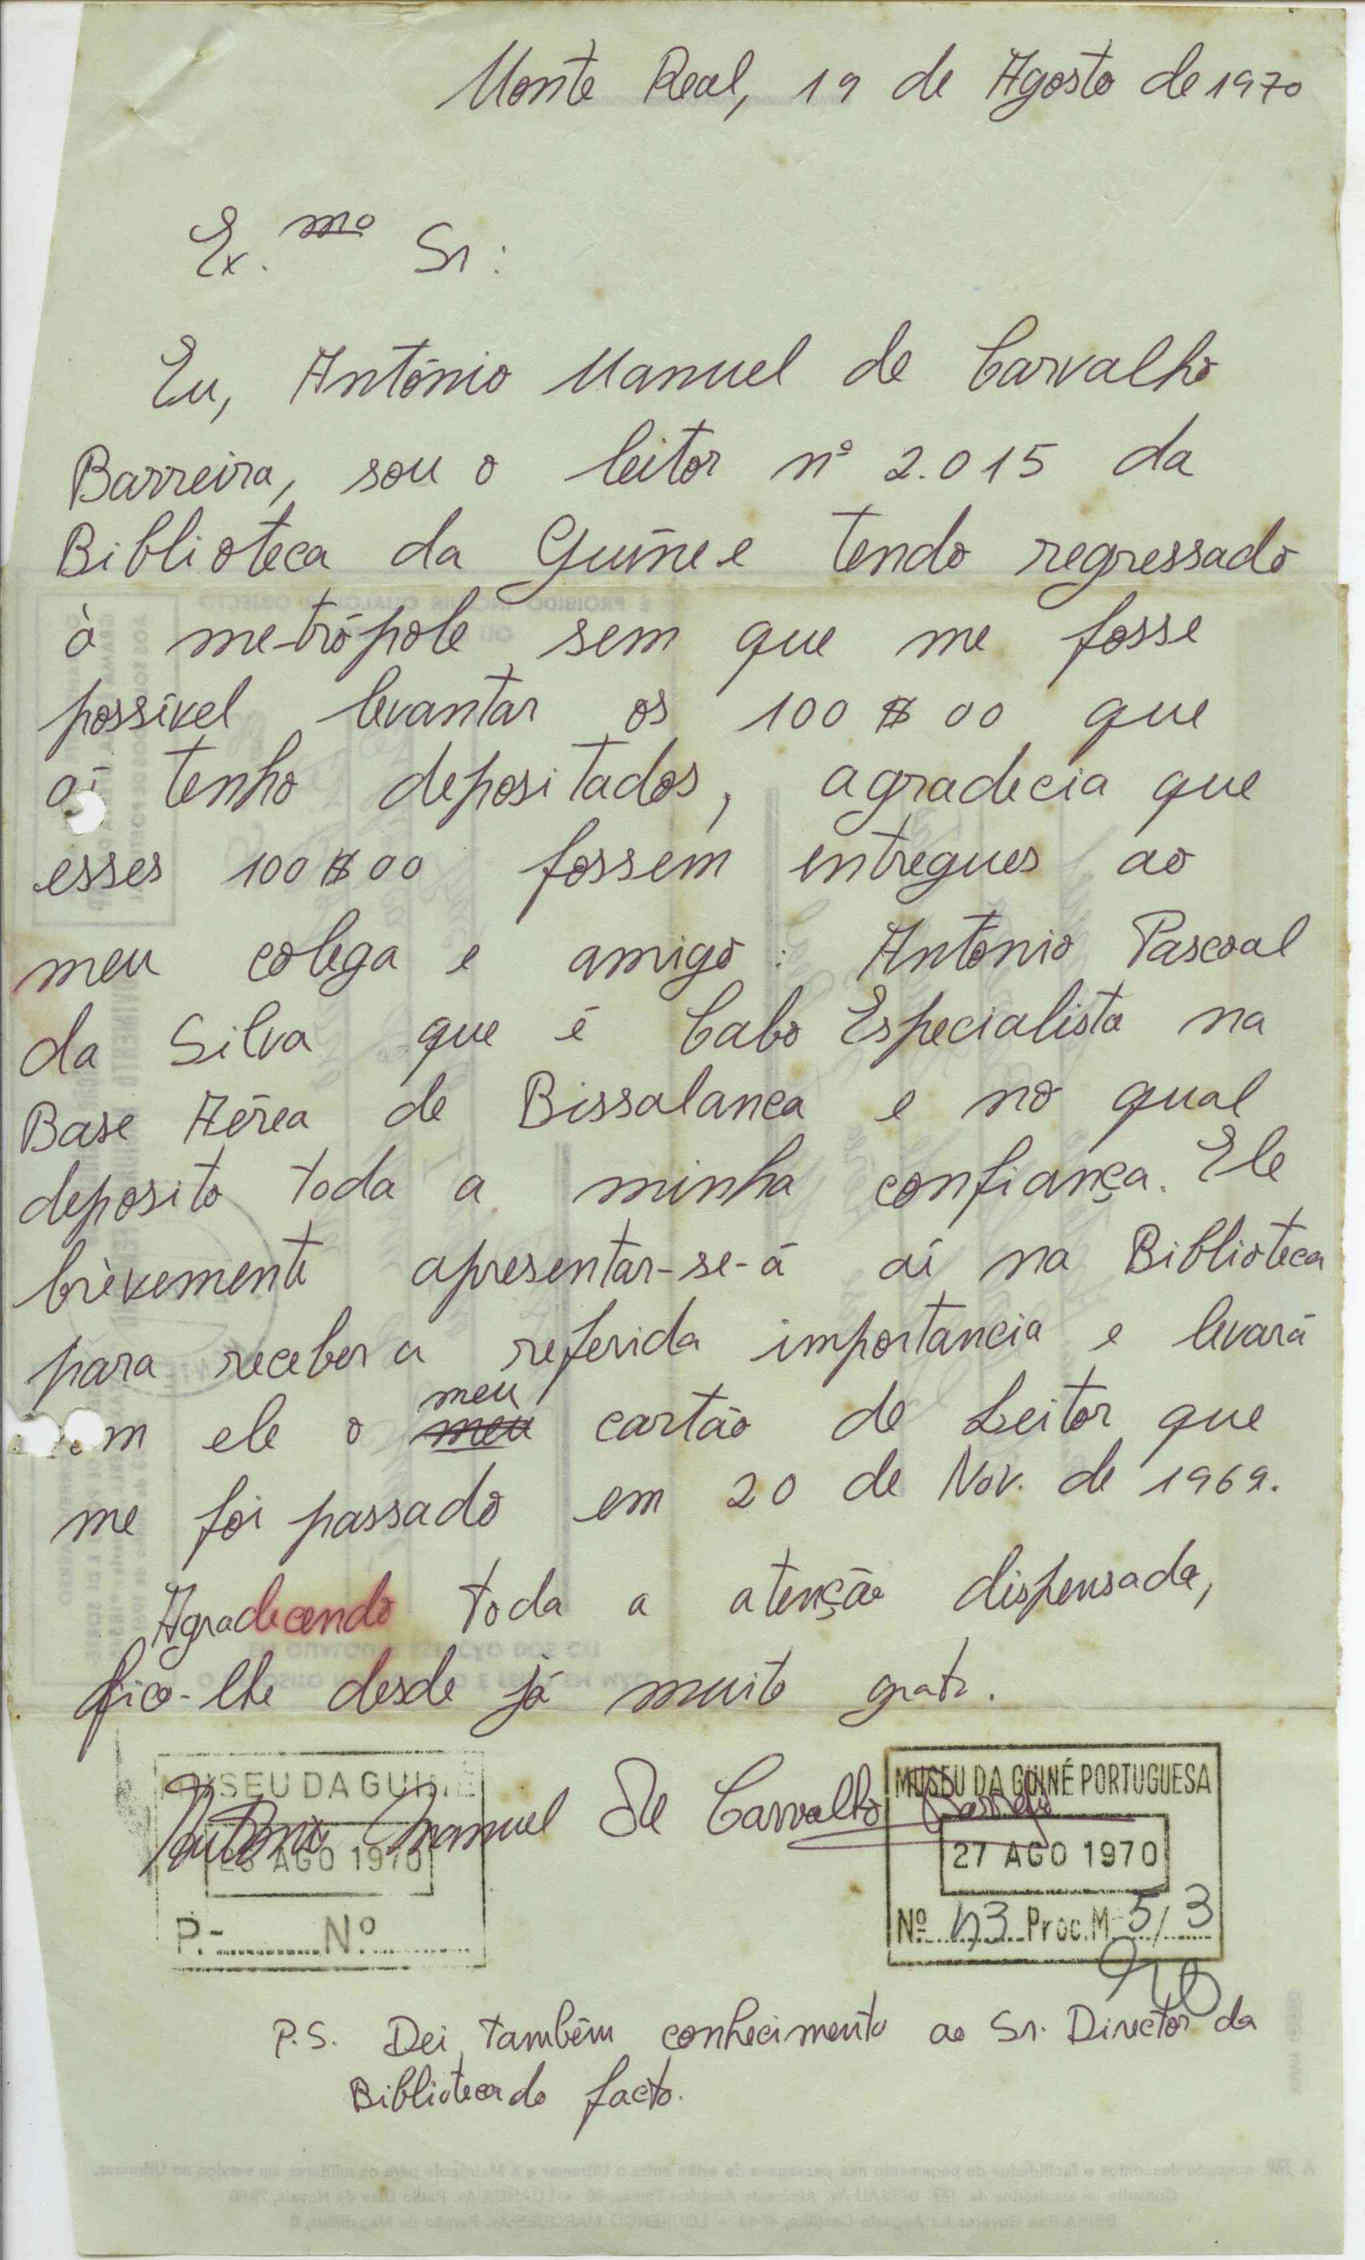 Monte Real, 19 de Agosto de 1970
Ex.mo Sr:
Eu, António Manuel de Carvalho
Barreira, sou o leitor nº 2.015 da
Biblioteca da Guiné e tendo regressado
à metrópole sem que me fosse
possível levantar os 100$00 que
aí tenho depositados, agradecia que
esses 100$00 fossem entregues ao
meu colega e amigo: António Pascoal
da Silva que é Cabo Especialista na
Base Aérea de Bissalanca e no qual
deposito toda a minha confiança. Ele
brèvemente apresentar-se-á aí na Biblioteca
para receber a referida importancia e levará
com ele o meu meu cartão de Leitor que
me foi passado em 20 de Nov. de 1969.
Agradecendo toda a atenção dispensada,
fico-lhe desde já muito grato.
António Manuel de Carvalho Barreira
MUSEU DA GUINÉ
AGO 1970
P.- Nº
MUSEU DA GUINÉ PORTUGUESA
27 AGO 1970
Nº Proc. M-5/3
P.S. Dei também conhecimento ao Sr. Director da
Biblioteca do facto.